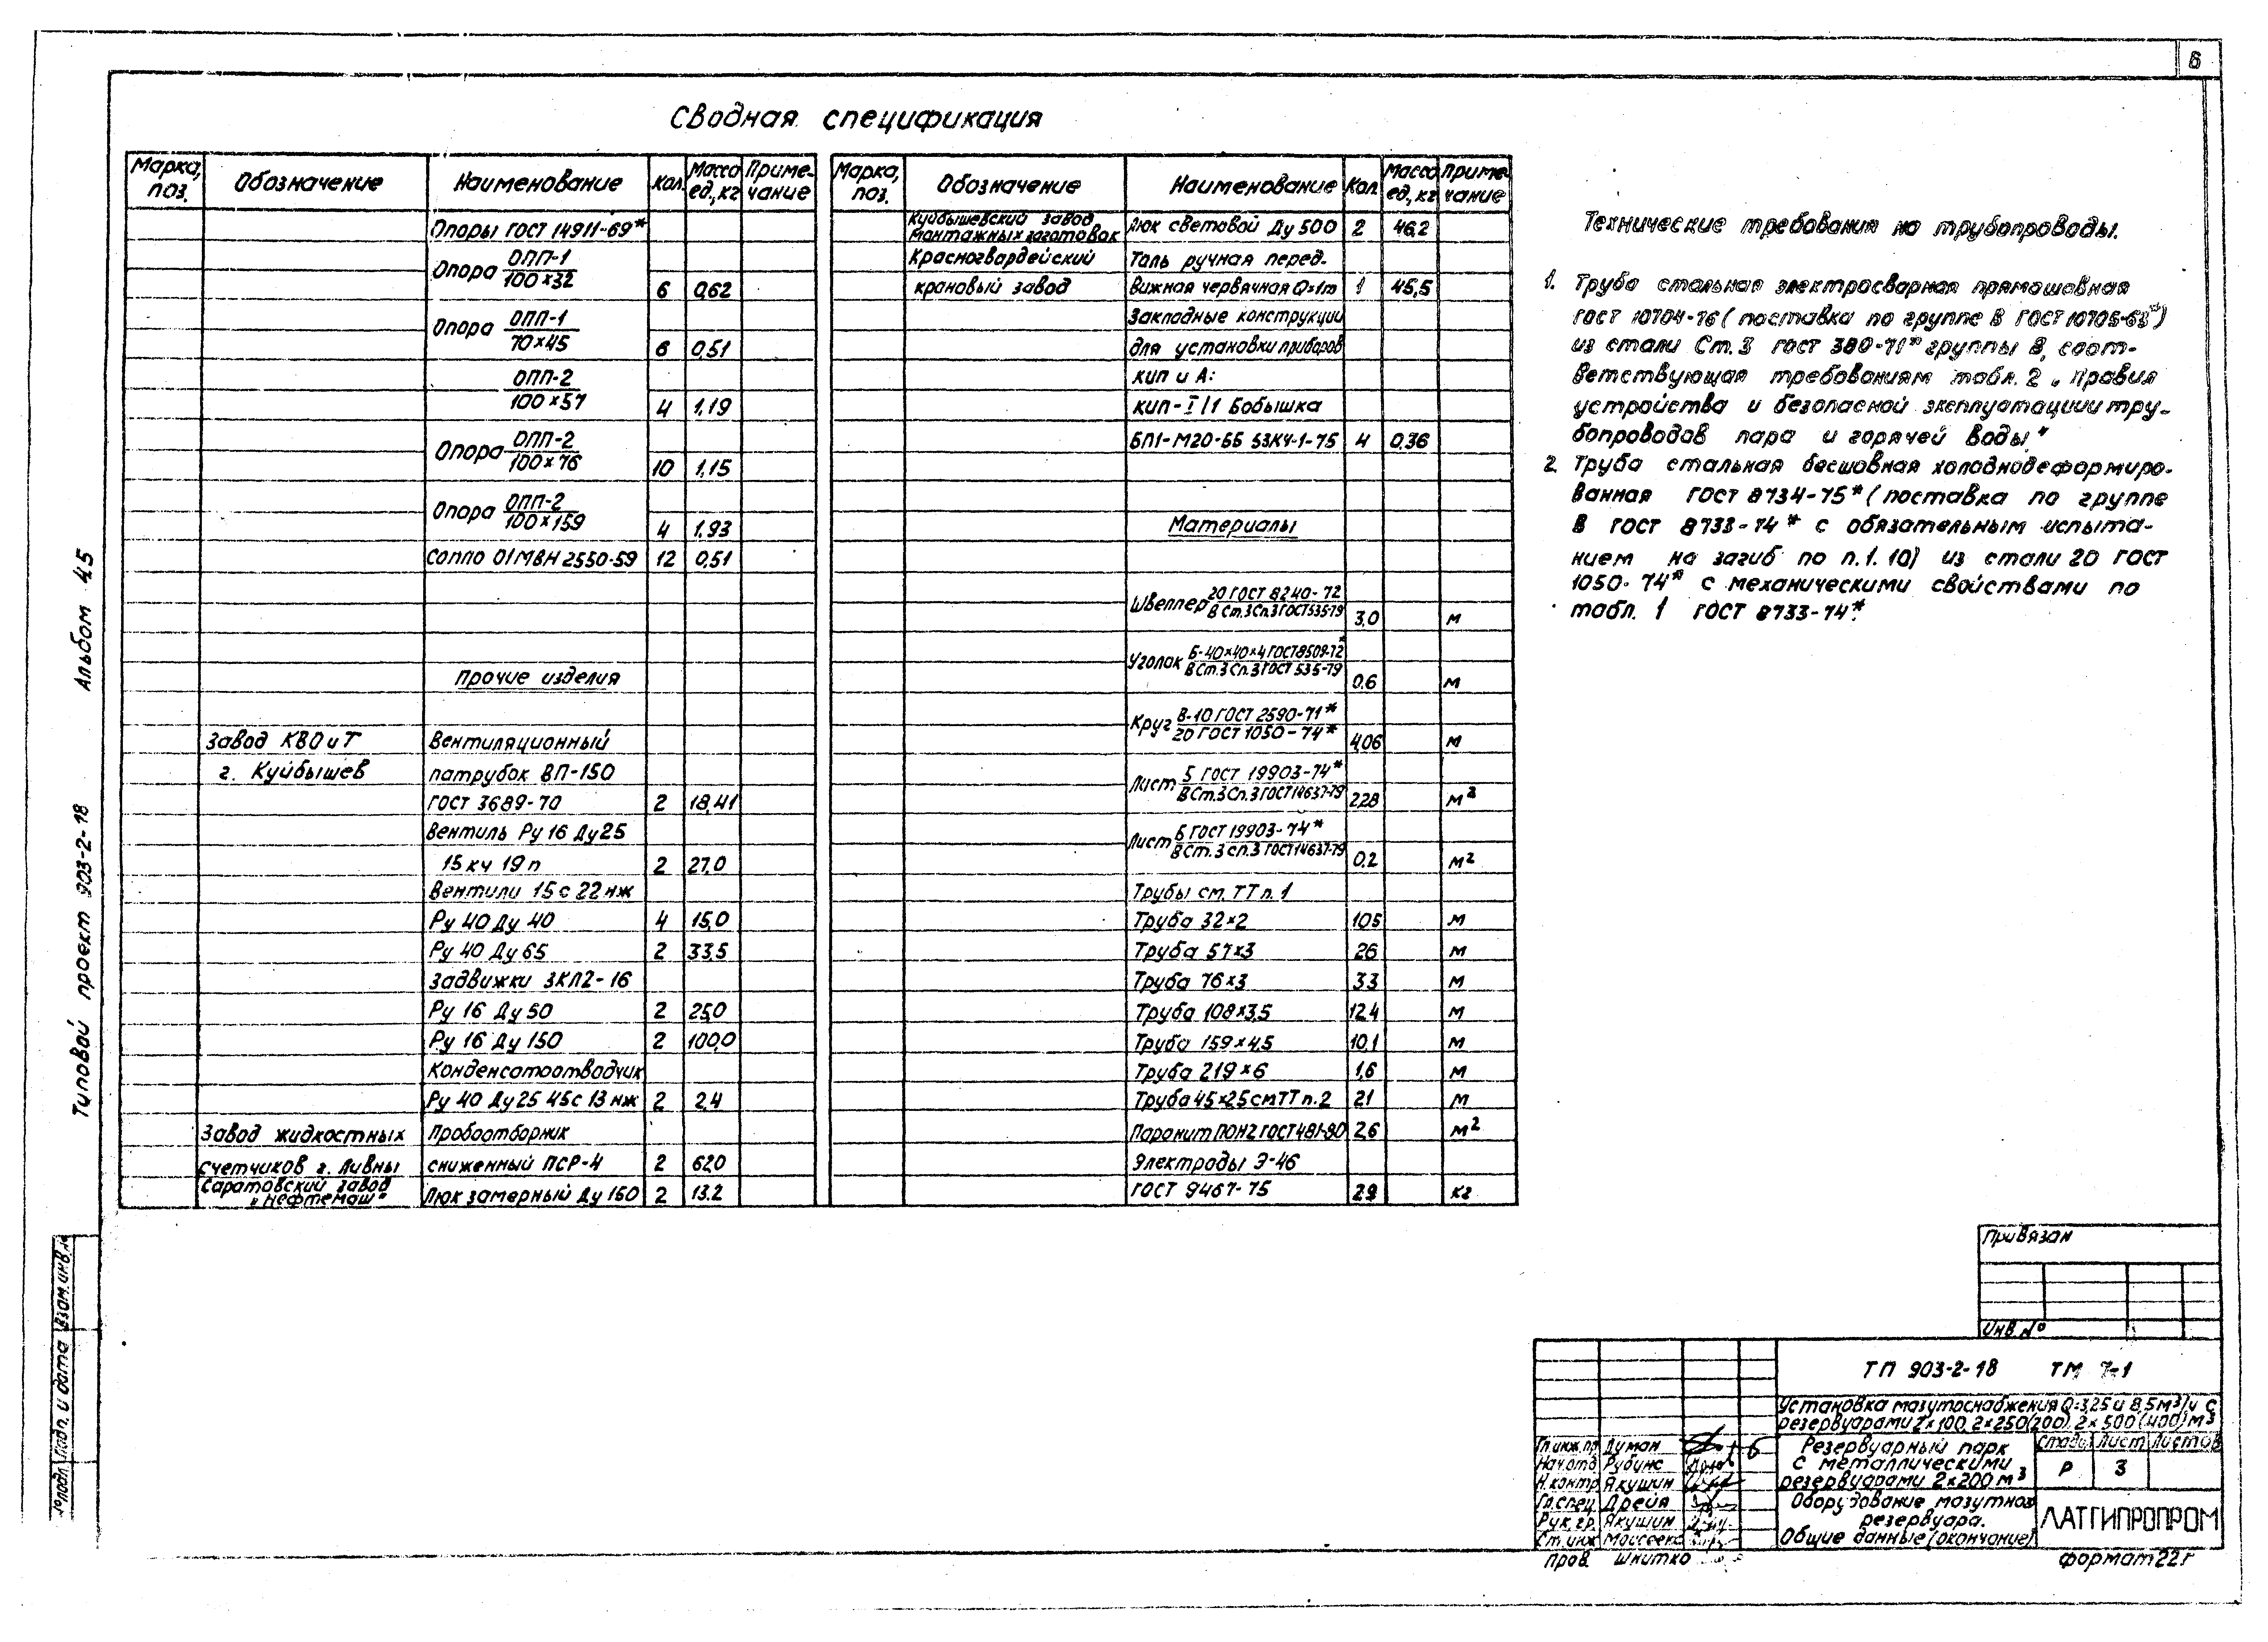 6
Сводная спецификация
Марка, поз. Обозначение Наименование Кол. Масса ед., кг Примечание
Опоры ГОСТ 14911-69*
Опора ОПП-1
100×32 6 0,62
Опора ОПП-1
70×45 6 0,51
ОПП-2
100×57 4 1,19
Опора ОПП-2
100×76 10 1,15
Опора ОПП-2
100×159 4 1,93
Сопло 01МВН 2550-59 12 0,51
Прочие изделия
Завод КВОиТ Вентиляционный
г. Куйбышев патрубок ВП-150
ГОСТ 3689-70 2 18,41
Вентиль Ру 16 Ду25
15кч 19п 2 27,0
Вентили 15с 22нж
Ру 40 Ду 40 4 15,0
Ру 40 Ду 65 2 33,5
Задвижки ЗКЛ2-16
Ру 16 Ду 50 2 25,0
Ру 16 Ду 150 2 100,0
Конденсатоотводчик
Ру 40 Ду25 45с 13нж 2 2,4
Завод жидкостных Пробоотборник
счетчиков г. Ливны сниженный ПСР-4 2 62,0
Саратовский завод
„Нефтемаш" Люк замерный Ду 150 2 13,2
Марка, поз. Обозначение Наименование Кол Масса ед., кг Примечание
Куйбышевский завод
монтажных заготовок Люк световой Ду 500 2 46,2
Красногвардейский Таль ручная перед-
крановый завод вижная червячная Q=1т 1 45,5
Закладные конструкции
для установки приборов
КИП и А:
КИП-I/1 Бобышка
БП1-М20-55 53К4-1-75 4 0,36
Материалы
Швеллер 20 ГОСТ 8240-72
В Ст.3Сп.3 ГОСТ535-79 3,0 м
Уголок Б-40×40×4 ГОСТ8509-72*
В Ст.3 Сп.3 ГОСТ 535-79 0,6 м
Круг В-10 ГОСТ 2590-71*
20 ГОСТ 1050-74* 4,06 м
Лист 5 ГОСТ 19903-74*
В Ст.3 Сп.3 ГОСТ14637-79 2,28 м²
Лист 6 ГОСТ 19903-74*
В Ст.3 Сп.3 ГОСТ14637-79 0,2 м²
Трубы см. ТТ п.1
Труба 32×2 105 м
Труба 57×3 26 м
Труба 76×3 33 м
Труба 108×3,5 12,4 м
Труба 159×4,5 10,1 м
Труба 219×6 1,6 м
Труба 45×2,5 см ТТ п.2 21 м
Паронит ПОН2 ГОСТ481-80 2,6 м²
Электроды Э-46
ГОСТ 9467-75 29 кг
Технические требования на трубопроводы.
1. Труба стальная электросварная прямошовная
ГОСТ 10704-76 (поставка по группе В ГОСТ 10705-63*)
из стали Ст.3 ГОСТ 380-71* группы В, соот-
ветствующая требованиям табл. 2 „Правил
устройства и безопасной эксплуатации тру-
бопроводов пара и горячей воды"
2. Труба стальная бесшовная холоднодеформиро-
ванная ГОСТ 8734-75* (поставка по группе
В ГОСТ 8733-74* с обязательным испыта-
нием на загиб по п.1.10) из стали 20 ГОСТ
1050-74* с механическими свойствами по
табл. 1 ГОСТ 8733-74*.
Альбом 4.5
Типовой проект 903-2-18
Взам. инв. №
Подп. и дата
№ подл.
Привязан
Инв. №
ТП 903-2-18 ТМ 7-1
Установка мазутоснабжения Q=3,25 и 8,5м³/ч с
резервуарами 2×100, 2×250(200), 2×500(400)м³
Гл.инж.пр. Думан
Нач.отд. Рубинс
Н.контр Якушин
Гл.спец Дрейя
Рук.гр. Якушин
Ст.инж
Пров. Шнитко
Резервуарный парк
с металлическими
резервуарами 2×200м³
Стадия Лист Листов
Р 3
Оборудование мазутного
резервуара.
Общие данные (окончание)
ЛАТГИПРОПРОМ
формат 22г